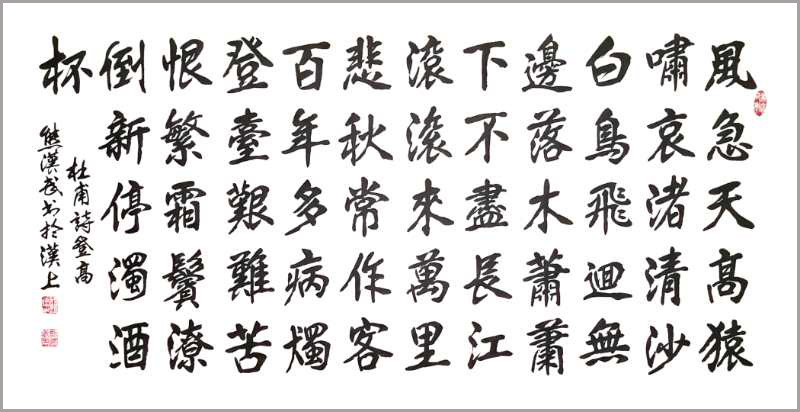 風急天高猿
嘯哀渚清沙
白鳥飛迴無
邊落木蕭蕭
下不盡長江
滾滾來萬里
悲秋常作客
百年多病燭
登臺艱難苦
恨繁霜鬢潦
倒新停濁酒
杯
杜甫詩登高
熊漢武书於漢上